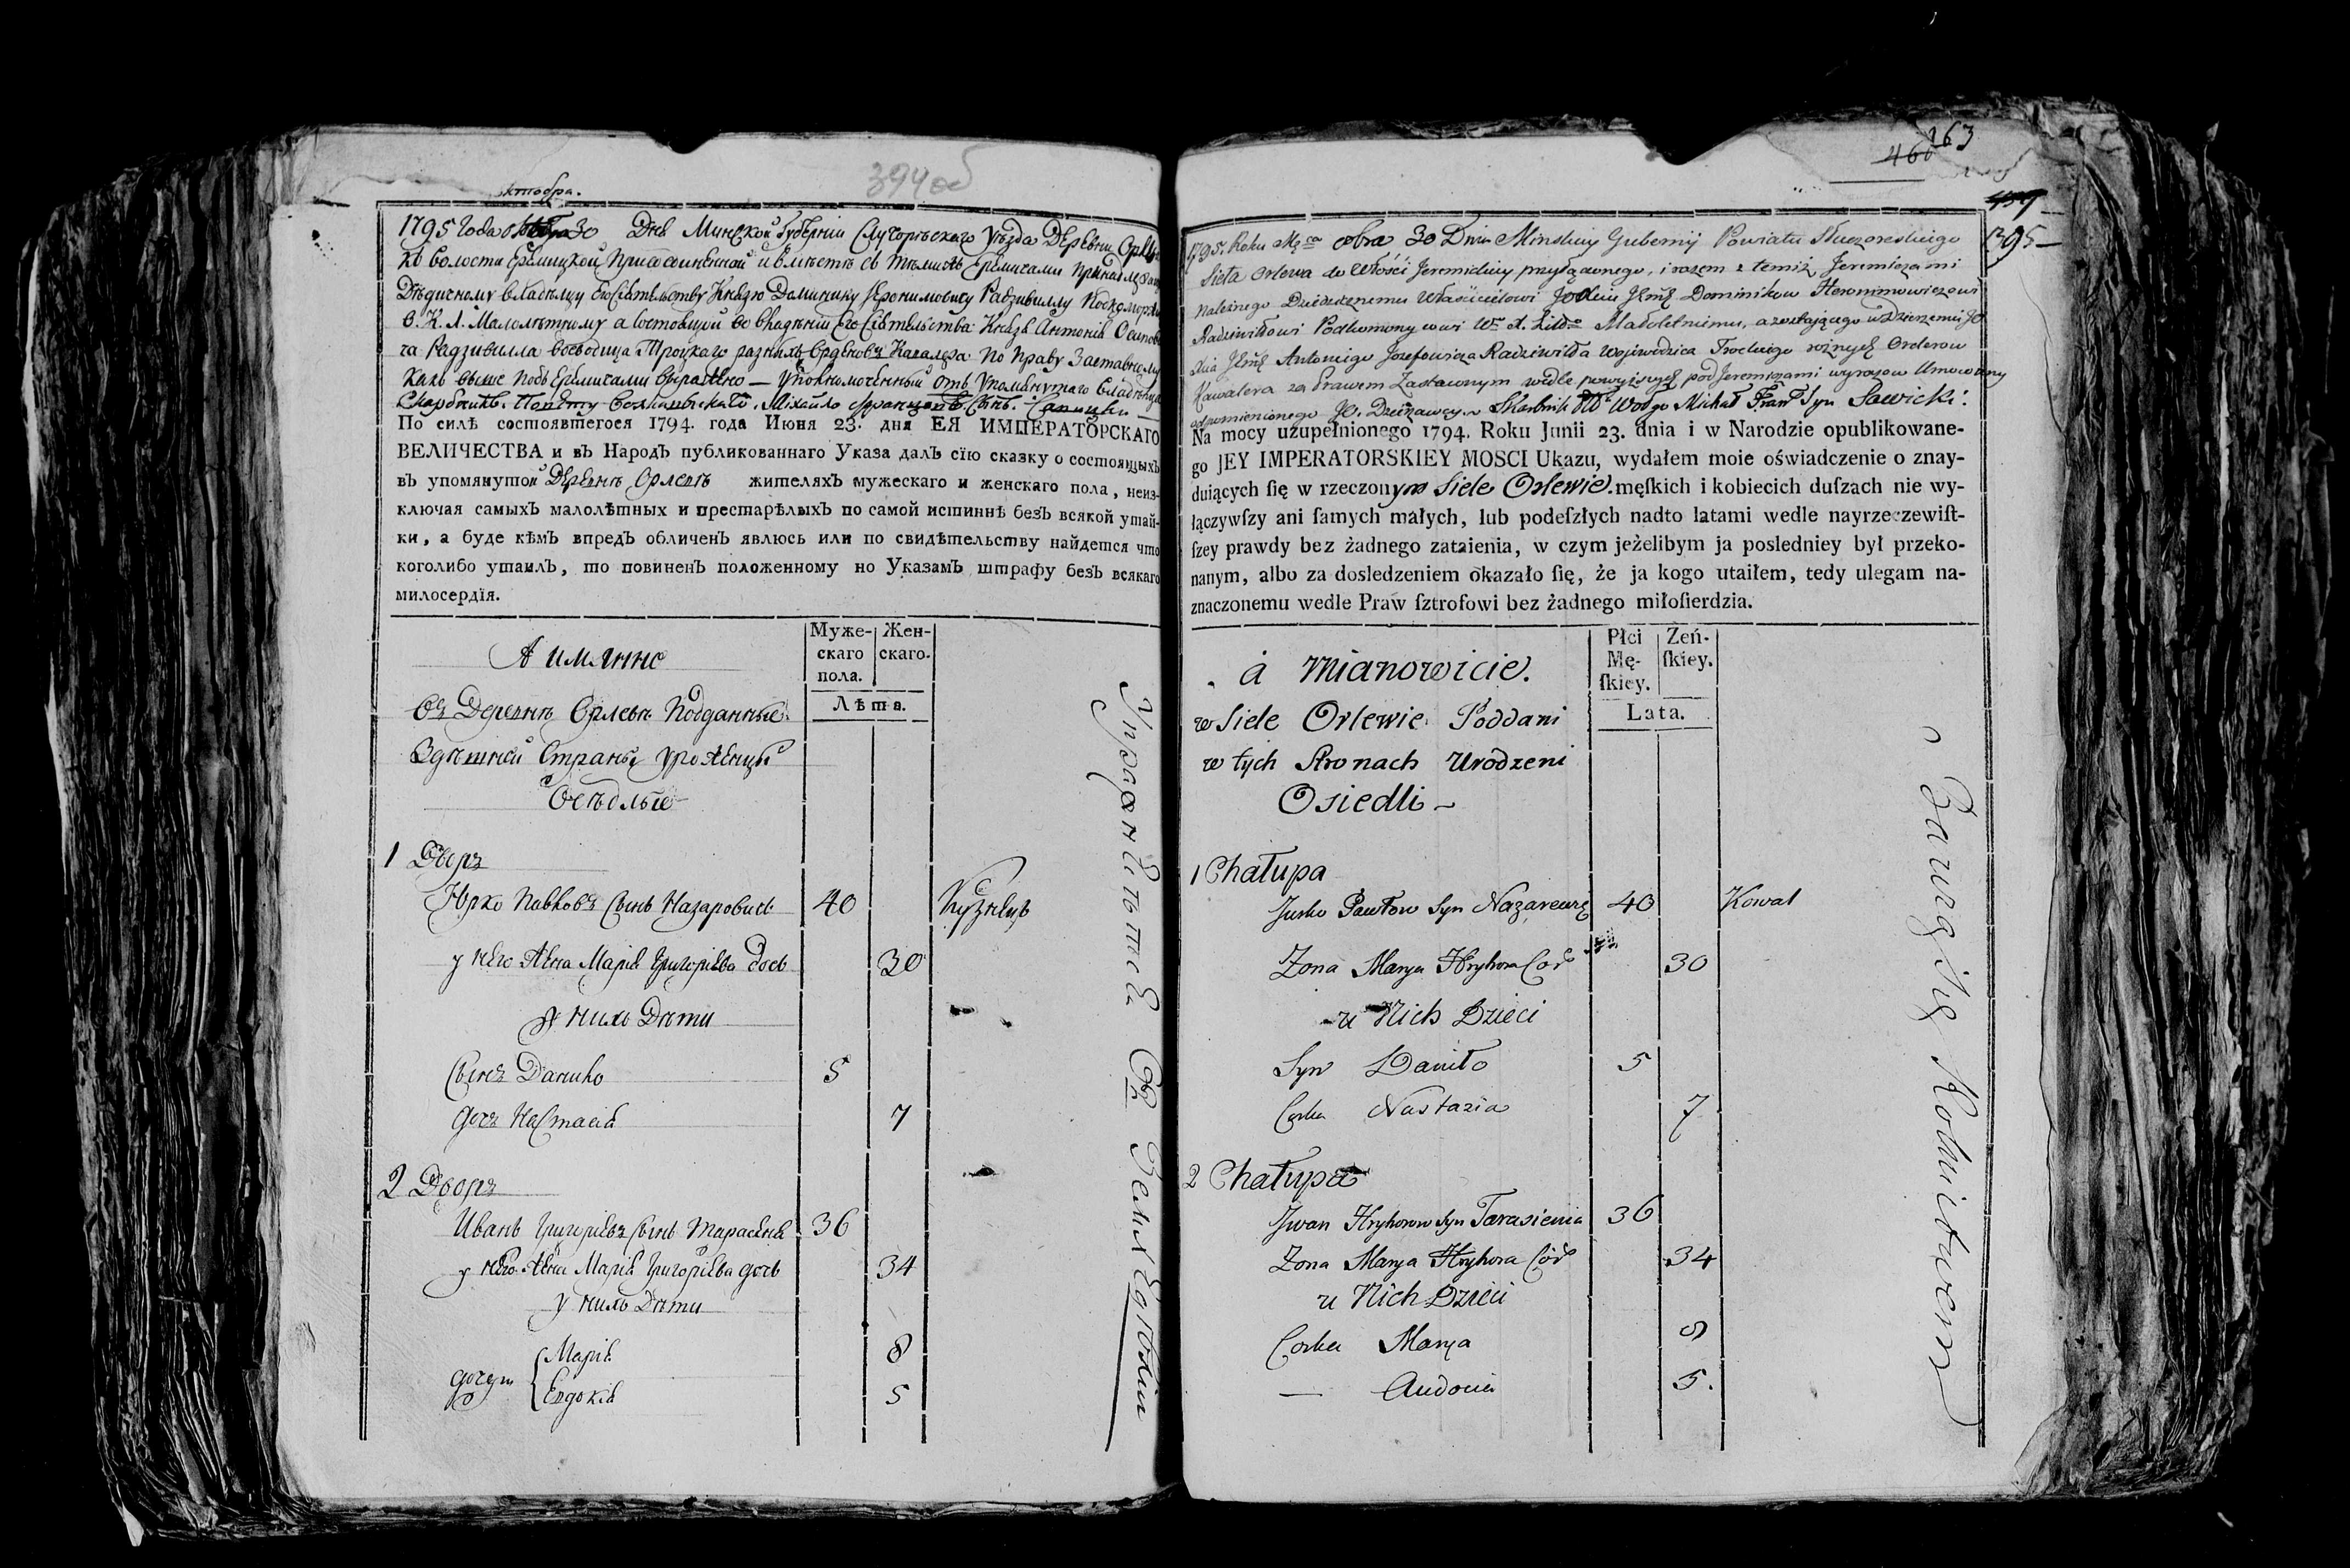 394 об
октобра.
1795 Года 30 Дня Минской Губерніи Случорѣскаго Уѣзда Деревни
къ волости Еремицкой присоединенной и вмѣстѣ съ тѣмижъ Еремичами
Дѣдичному владѣлцу Его Сіятельству Князю Доминику Иеронимовичу Радзивиллу Подкоморж
В. К. Л. Малолѣтному а состоящой во владѣніи Его Сіятельства Князя Антонія Осипов
ча Радзивилла воеводица Троцкаго разныхъ Орденовъ Кавалера по праву Заставному
какъ выше подъ Еремичами — уполномоченный отъ упомянутаго
Скарбникъ Михайло сынъ
По силѣ состоявшегося 1794. года Іюня 23. дня ЕЯ ИМПЕРАТОРСКАГО
ВЕЛИЧЕСТВА и въ Народъ публикованнаго Указа далъ сїю сказку о состоящыхъ
въ упомянутой Деревнѣ Орлевѣ жителяхъ мужескаго и женскаго пола, неиз-
ключая самыхъ малолѣтныхъ и престарѣлыхъ по самой истиннѣ безъ всякой утай-
ки, а буде кѣмъ впредъ обличенъ явлюсь или по свидѣтельству найдется что
коголибо утаилъ, то повиненъ положенному по Указамъ штрафу безъ всякаго
милосердїя.
А имянно
Муже-
скаго
пола.
Жен-
скаго.
Лѣта.
Въ Деревнѣ Орлевѣ Подданные
Здѣшней Страны Уроженцы
Осѣдлые
1 Дворъ
Юрко Павловъ сынъ Назаровичъ 40 Кузнецъ
у него жена Марія Григоріева дочь 30
у нихъ Дѣти
Сынъ Данило 5
дочь Настасія 7
2 Дворъ
Иванъ Григоріевъ сынъ Тарасеня 36
у него жена Марія Григоріева дочь 34
у нихъ Дѣти
дочери { Марія 8
Евдокія 5
Упражняются въ Земледѣліи
163
460
459
395
1795. Roku Mca 8bra 30 Dnia Minskiey Gubernij Powiatu Słuczoreskiego
Sieła Orlewa do Włości Jeremickiey przyłączonego, i razem z temiż Jeremiczami
należnego Dziedzicznemu Właścicielowi Dominikow Hieronimowiczowi
Radziwiłłowi Podkomorzyowi W. X. Małoletniemu, a zostającego w Dzierżeniu
Antoniego Jozefowicza Radziwiłła Wojewodzica Trockiego rożnych Orderow
Kawalera za Prawem Zastawnym wedle powyższych pod Jeremiczami wyrazow Umocowany
odpomienionego JO. Dzierżawcy Skarbnik Michał Fran Syn Sawicki.
Na mocy uzupełnionego 1794. Roku Junii 23. dnia i w Narodzie opublikowane-
go JEY IMPERATORSKIEY MOSCI Ukazu, wydałem moie oświadczenie o znay-
duiących ſię w rzeczonym Siele Orlewie. męſkich i kobiecich duſzach nie wy-
łączywſzy ani ſamych małych, lub podeſzłych nadto latami wedle nayrzeczewiſt-
ſzey prawdy bez żadnego zataienia, w czym jeżelibym ja posledniey był przeko-
nanym, albo za dosledzeniem okazało ſię, że ja kogo utaiłem, tedy ulegam na-
znaczonemu wedle Praw ſztrofowi bez żadnego miłoſierdzia.
à Mianowicie.
Płci
Mę-
ſkiey.
Zeń-
ſkiey.
Lata.
w Siele Orlewie Poddani
w tych Stronach Urodzeni
Osiedli
1 Chałupa
Jurko Pawłow Syn Nazarewicz 40 Kowal
Zona Marya Hryhora Cor 30
u Nich Dzieci
Syn Daniło 5
Corka Nastazia 7
2 Chałupa
Jwan Hryhorow Syn Tarasienia 36
Zona Marya Hryhora Cor 34
u Nich Dzieci
Corka Marya 8
— Audocia 5.
Bawią się Rolnictwem